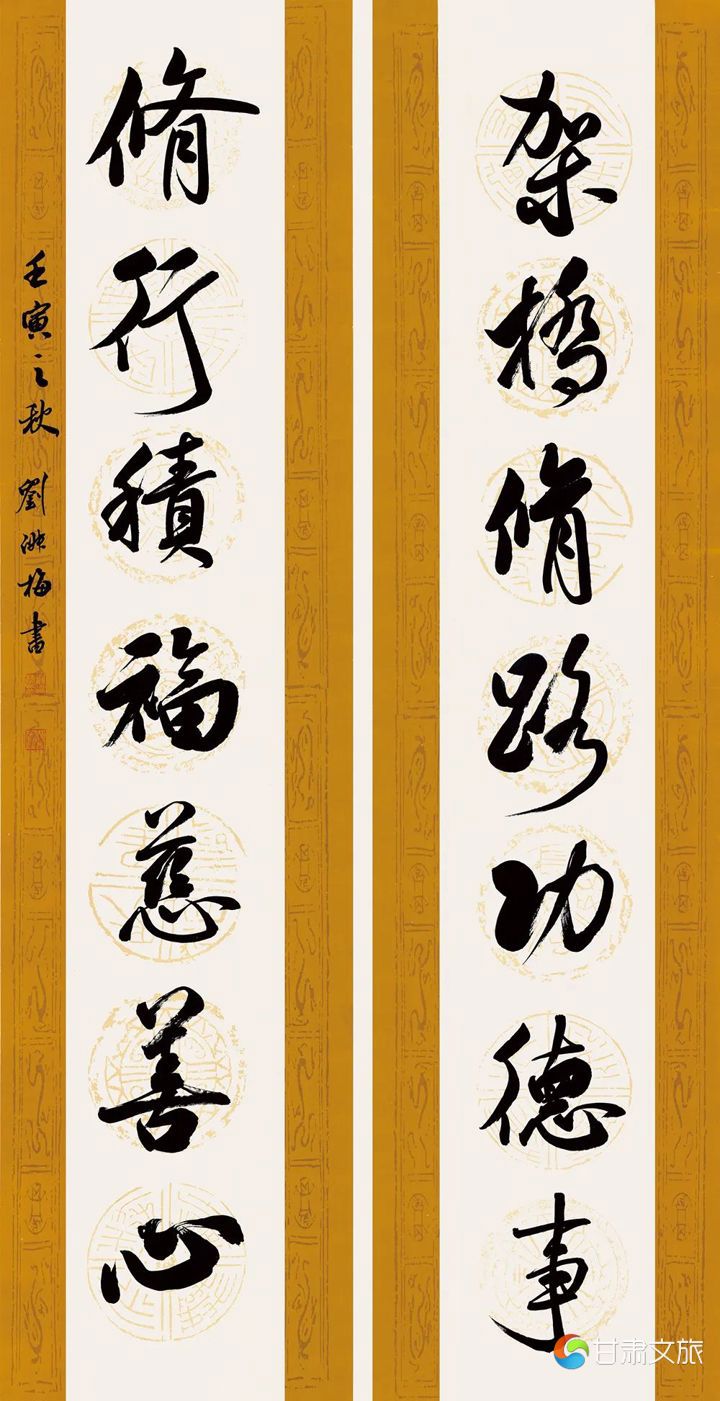 架橋脩路功德事
脩行積福慈善心
壬寅之秋 劉淑梅書
甘肃文旅